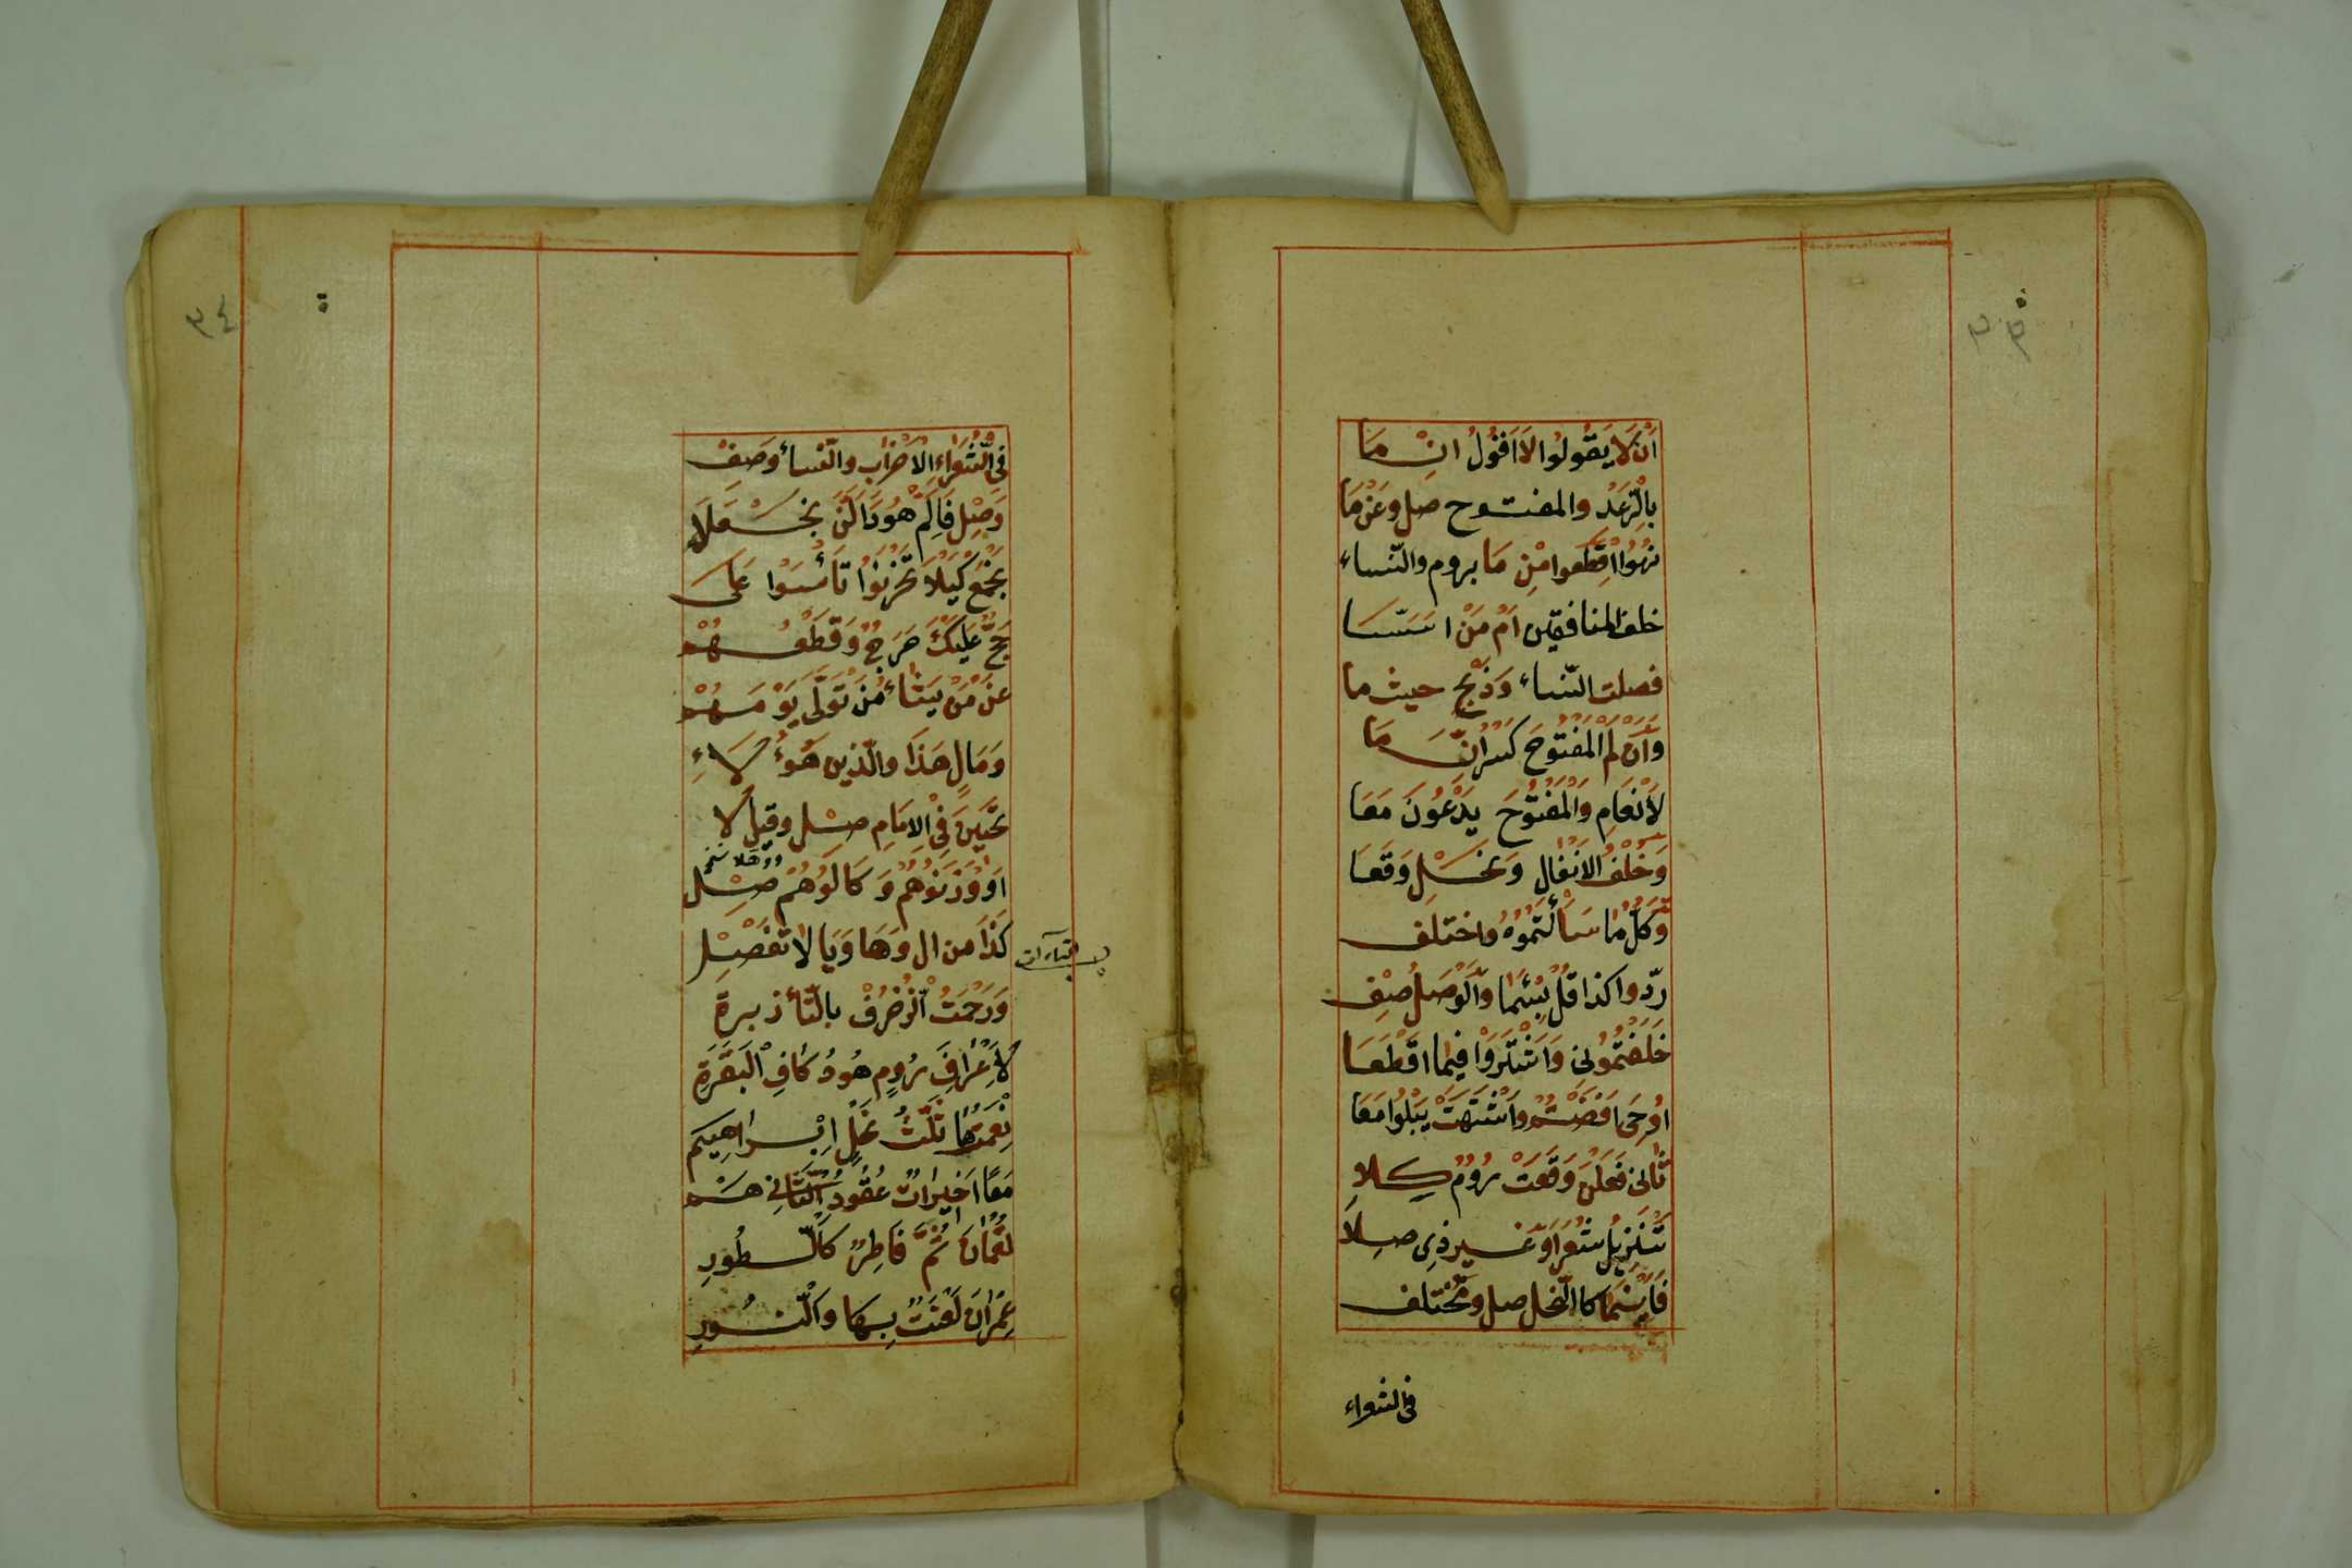 أَنْ لَا يَقُولُوا لَا أَقُولُ إِنْ مَا
بِالرَّعْدِ والمفتوح صل وَعَنْ مَا
نُهُوا اقْطَعُوا مِنْ مَا بروم والنّساء
خلف المنافقين أَمْ مَنْ اسَّسَا
فصلت النّساء وَذِبْحٍ حيث ما
وَأَنْ لَمِ الْمَفْتُوحَ كَسْرُ إِنَّ مَا
لَأَنْعَامِ وَالْمَفْتُوحَ يَدْعُونَ مَعَا
وَخُلْفُ الانفال وَنَحْلٍ وَقَعَا
وَكُلِّ مَا سَأَلْتُمُوهُ واختلف
ردّوا كذا قُلْ بِئْسَمَا وَالْوَصْلُ صِفْ
خَلَفْتُمُونِى وَاشْتَرَوْا فِيمَا اقْطَعَا
أُوحِىَ أَفَضْتُمُ وَاشْتَهَتْ يَبْلُوا مَعَا
ثَانِى فَعَلْنَ وَقَعَتْ رُومٌ كِلَا
تَنْزِيلُ شُعَرَا وَغَيْر ذِى صِلَا
فَأَيْنَمَا كالنّحل صل وَمُخْتَلِف
فى الشعراء
٣٤
فِى الشُّعَرَاءِ الْأَحْزَاب والنّساء وَصِفْ
وَصِلْ فَإِلَّمْ هُودَ أَلَّنْ نَجْعَلَا
نَجْمَعَ كَيْلَا تَحْزَنُوا تَأْسَوْا عَلَى
حَجٌّ عَلَيْكَ حَرَجٌ وَقَطْعُهُمْ
عَنْ مَنْ يَشَاءُ مَنْ تَوَلَّى يَوْمَ هُمْ
وَمَالِ هَذَا وَالَّذِينَ هَؤُلَاءِ
تَحِينَ فِى الْإِمَامِ صِلْ وقيل لا
أَوْ وَزَنُوهُمْ وَكَالُوهُمْ صِلْ
كَذَا مِن ال وَهَا وَيَا لَا تَفْصِلْ
وَرَحْمَتُ الزُّخْرُفْ بِالتَّا زبره
لَأَعْرَافِ رُومٍ هُودُ كَافِ الْبَقَرَةِ
نِعْمَتُهَا ثَلَثُ نَحْلٍ إِبْرَاهِيم
مَعًا أَخِيرَاتٌ عُقُودُ الثَّانِى هَمْ
لُقْمَانُ ثُمَّ فَاطِرٌ كَالطُّورِ
عِمْرَانَ لَعْنَتُ بِهَا وَالنُّورِ